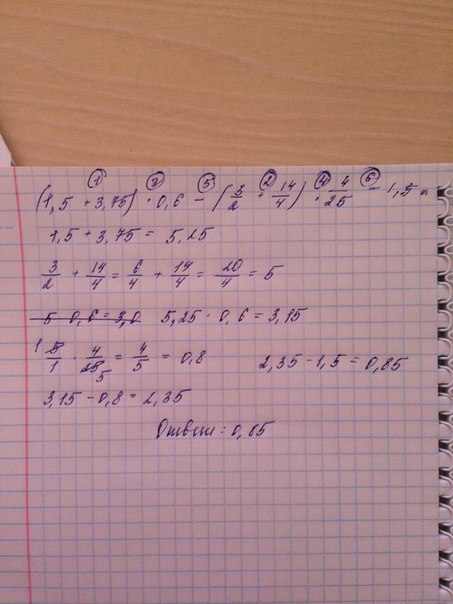 ① ③ ⑤ ② ④ ⑥
(1,5 + 3,75) · 0,6 − (3/2 + 14/4) · 4/25 − 1,5 =
1,5 + 3,75 = 5,25
3/2 + 14/4 = 6/4 + 14/4 = 20/4 = 5
5 · 0,6 = 3,0 5,25 · 0,6 = 3,15
1 5/1 · 4/25 5 = 4/5 = 0,8 2,35 − 1,5 = 0,85
3,15 − 0,8 = 2,35
Ответ: 0,85